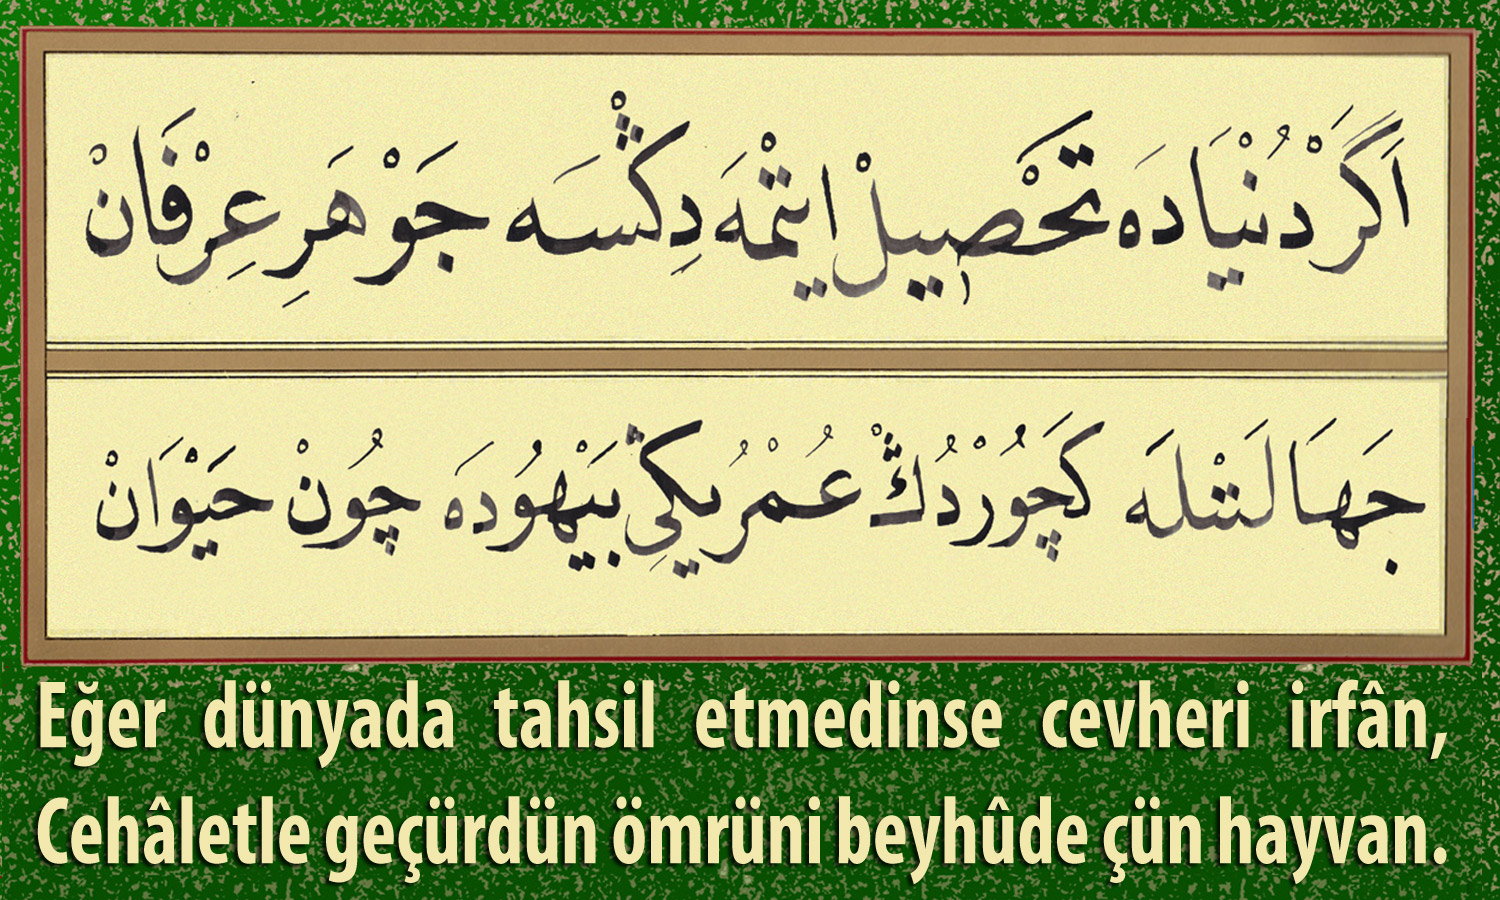 اَكَرْ دُنْيَادَه تَحْصِيلْ ايتْمَه دِكْسَه جَوْهَرِ عِرْفَانْ
جَهَالَتْلَه كَچُورْدُكْ عُمْرُيكِى بَيْهُودَه چُونْ حَيْوَانْ
Eğer dünyada tahsil etmedinse cevheri irfân,
Cehâletle geçürdün ömrüni beyhûde çün hayvan.